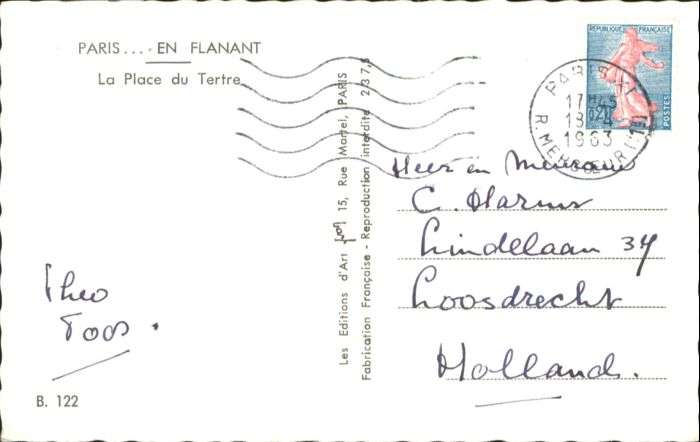 PARIS.... EN FLANANT
La Place du Tertre
Theo
Toos.
B. 122
Les Editions d'Art yvon 15, Rue Martel, PARIS
Fabrication Française - Reproduction interdite
REPUBLIQUE FRANÇAISE
POSTES
0,20
PARIS
17H45
1963
R. MERCŒUR (11E)
Heer en Mevrouw
C. Harms
Lindelaan 34
Loosdrecht
Holland.